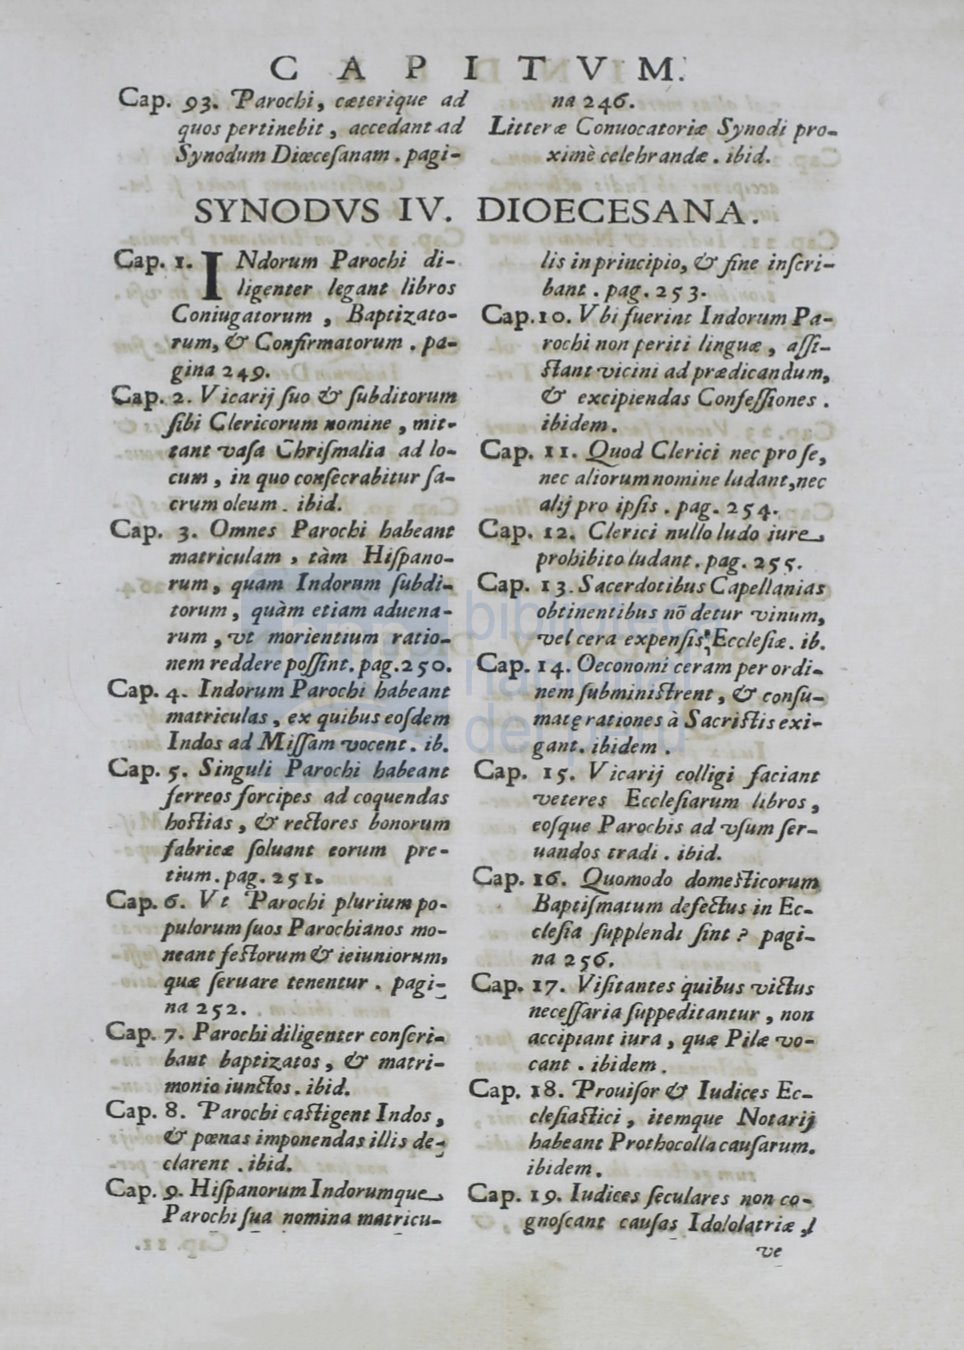 CAPITVM.
Cap. 93. Parochi, cæterique ad
quos pertinebit, accedant ad
Synodum Diœceſanam. pagi-
na 246.
Litteræ Conuocatoriæ Synodi pro-
ximè celebrandæ. ibid.
SYNODVS IV. DIOECESANA.
Cap. 1. INdorum Parochi di-
ligenter legant libros
Coniugatorum, Baptizato-
rum, & Confirmatorum. pa-
gina 249.
Cap. 2. Vicarij ſuo & ſubditorum
ſibi Clericorum nomine, mit-
tant vaſa Chriſmalia ad lo-
cum, in quo conſecrabitur ſa-
crum oleum. ibid.
Cap. 3. Omnes Parochi habeant
matriculam, tàm Hiſpano-
rum, quam Indorum ſubdi-
torum, quàm etiam aduena-
rum, vt morientium ratio-
nem reddere poſſint. pag. 250.
Cap. 4. Indorum Parochi habeant
matriculas, ex quibus eoſdem
Indos ad Miſſam vocent. ib.
Cap. 5. Singuli Parochi habeant
ferreos forcipes ad coquendas
hoſtias, & rectores bonorum
fabricæ ſoluant eorum pre-
tium. pag. 251.
Cap. 6. Vt Parochi plurium po-
pulorum ſuos Parochianos mo-
neant feſtorum & ieiuniorum,
quæ ſeruare tenentur. pagi-
na 252.
Cap. 7. Parochi diligenter conſcri-
bant baptizatos, & matri-
monio iunctos. ibid.
Cap. 8. Parochi caſtigent Indos,
& pœnas imponendas illis de-
clarent. ibid.
Cap. 9. Hiſpanorum Indorumque
Parochi ſua nomina matricu-
lis in principio, & fine inſcri-
bant. pag. 253.
Cap. 10. Vbi fuerint Indorum Pa-
rochi non periti linguæ, aſſi-
ſtant vicini ad prædicandum,
& excipiendas Confeſſiones.
ibidem.
Cap. 11. Quod Clerici nec pro ſe,
nec aliorum nomine ludant, nec
alij pro ipſis. pag. 254.
Cap. 12. Clerici nullo ludo iure
prohibito ludant. pag. 255.
Cap. 13. Sacerdotibus Capellanias
obtinentibus nō detur vinum,
vel cera expenſis Eccleſiæ. ib.
Cap. 14. Oeconomi ceram per ordi-
nem ſubminiſtrent, & conſu-
matę rationes à Sacriſtis exi-
gant. ibidem.
Cap. 15. Vicarij colligi faciant
veteres Eccleſiarum libros,
eoſque Parochis ad vſum ſer-
uandos tradi. ibid.
Cap. 16. Quomodo domeſticorum
Baptiſmatum defectus in Ec-
cleſia ſupplendi ſint? pagi-
na 256.
Cap. 17. Viſitantes quibus victus
neceſſaria ſuppeditantur, non
accipiant iura, quæ Pilæ vo-
cant. ibidem.
Cap. 18. Prouiſor & Iudices Ec-
cleſiaſtici, itemque Notarij
habeant Prothocolla cauſarum.
ibidem.
Cap. 19. Iudices ſeculares non co-
gnoſcant cauſas Idololatriæ,
ve